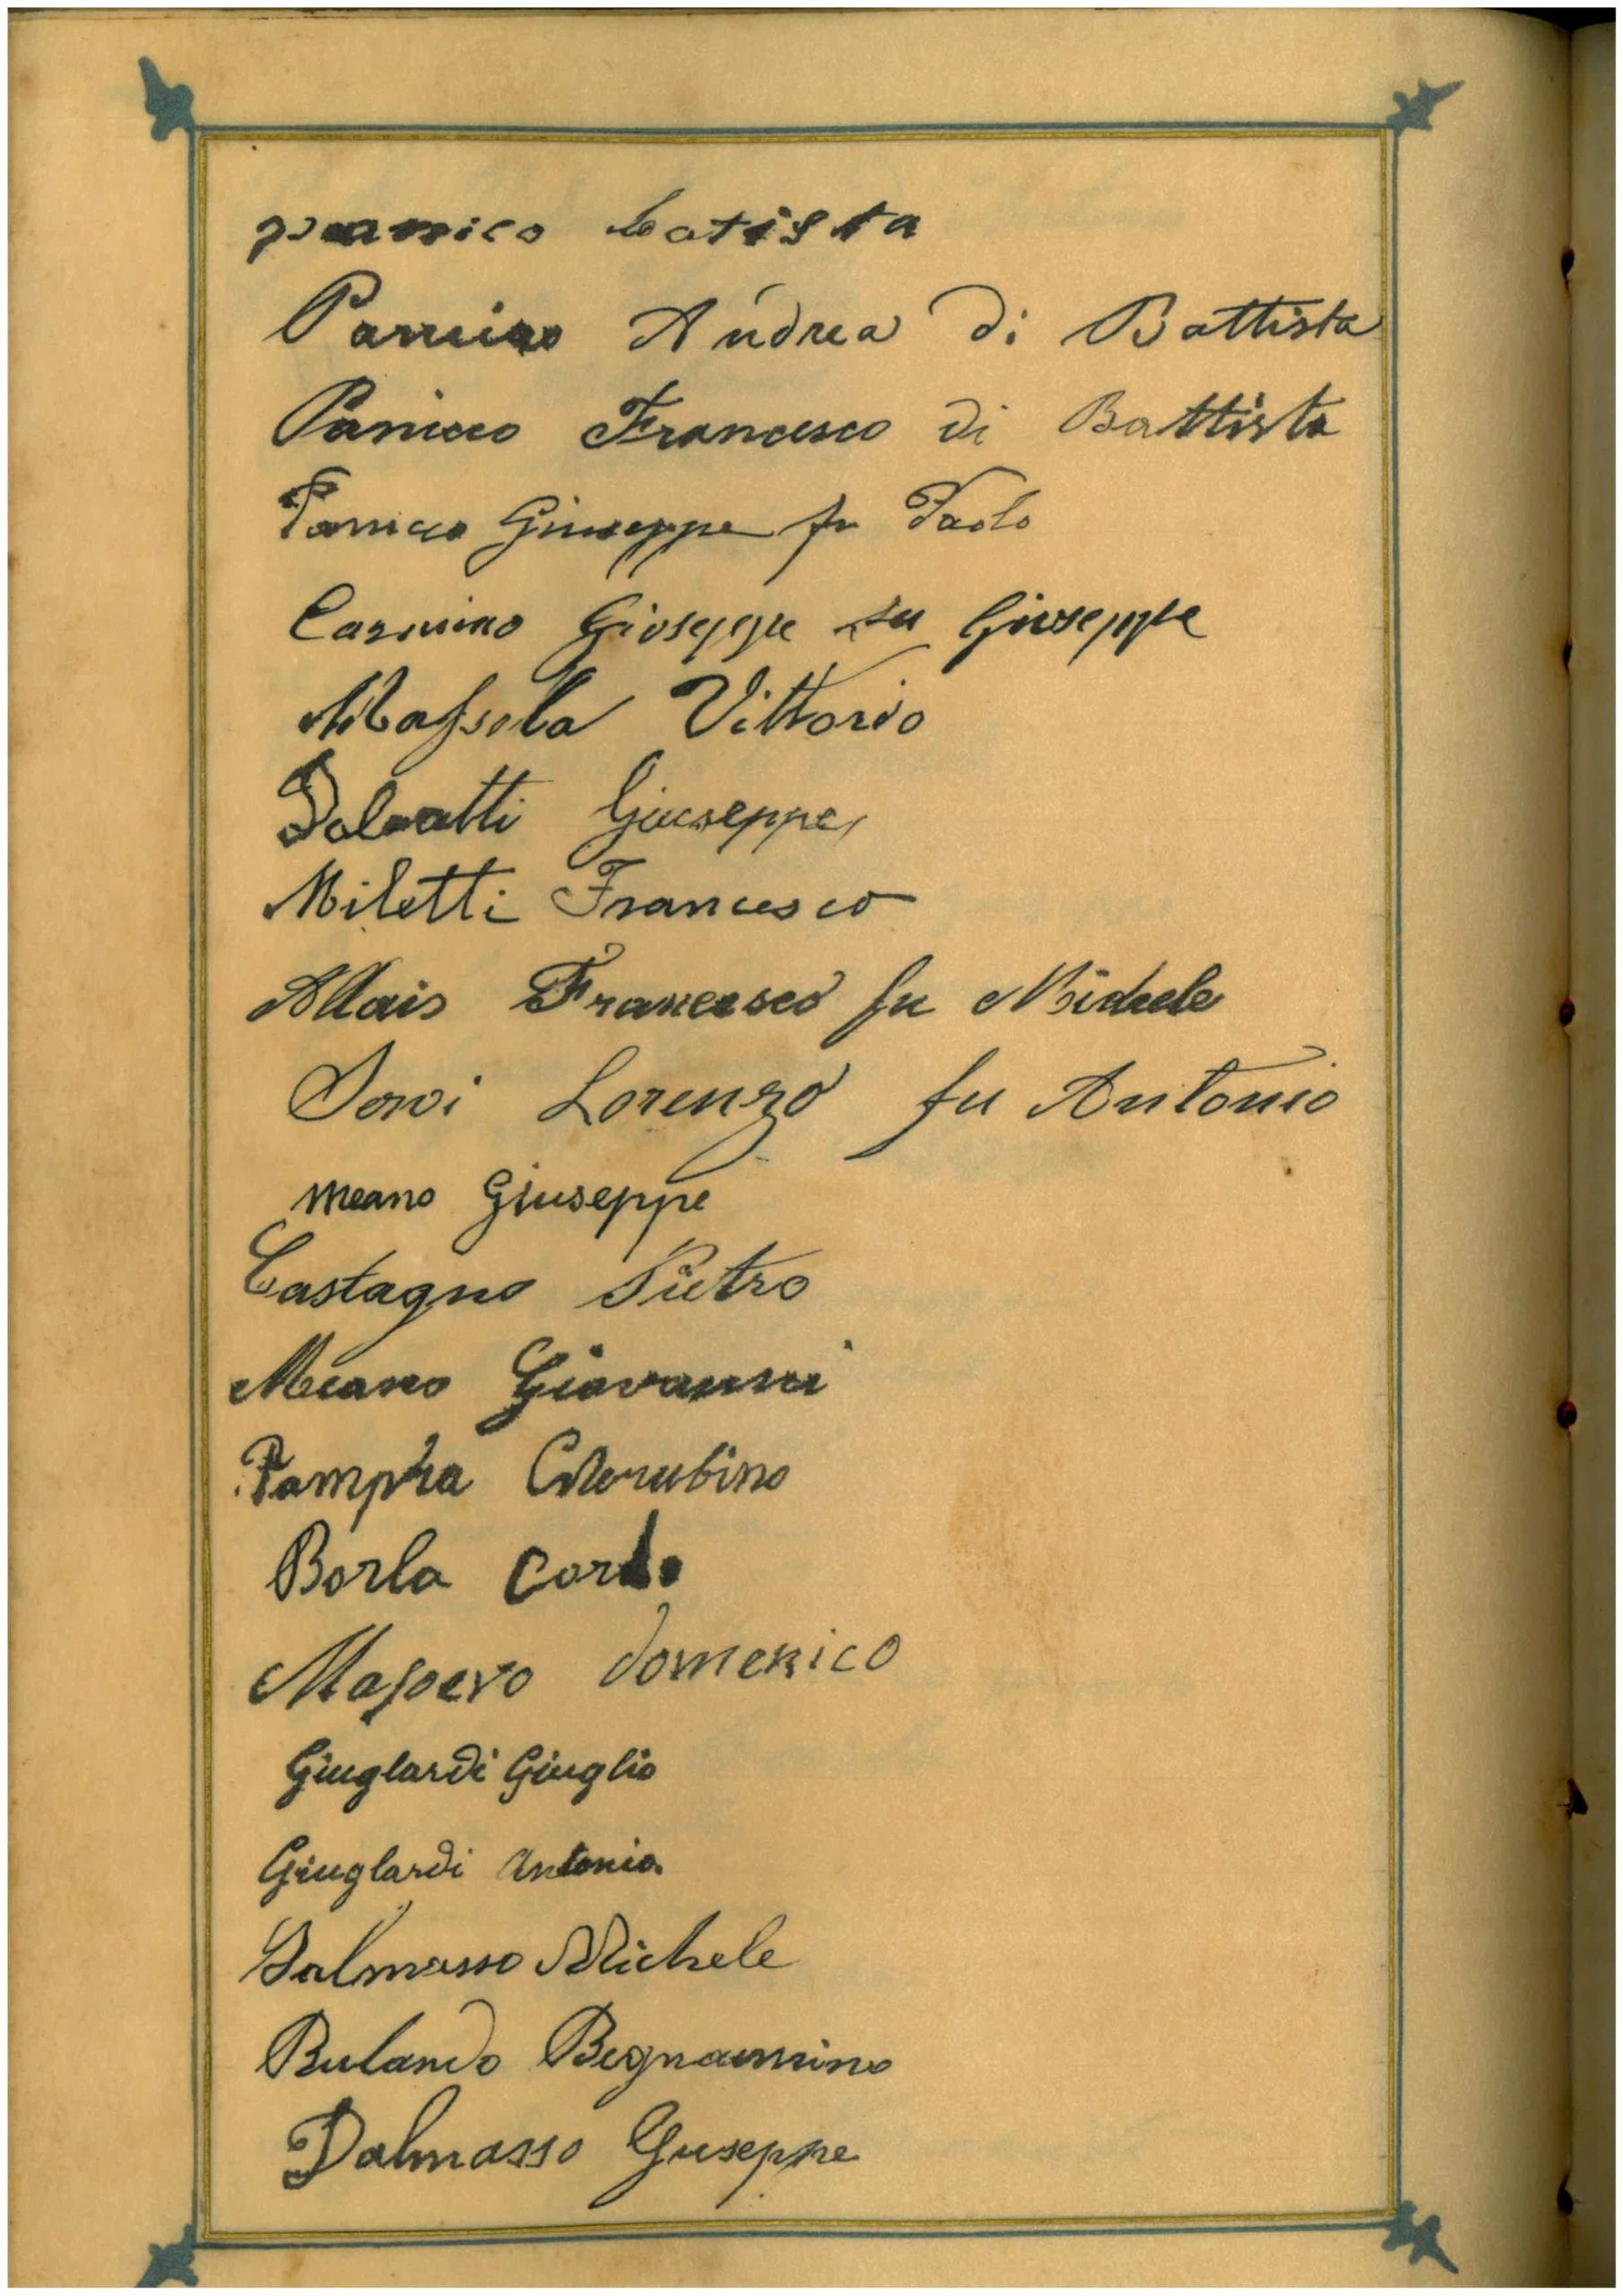 panico batista
Panico Andrea di Battista
Panicco Francesco di Battista
Panicco Giuseppe fu Paolo
Giuseppe fu Giuseppe
Massola Vittorio
Giuseppe
Miletti Francesco
Allais Francesco fu Michele
Lorenzo fu Antonio
meano Giuseppe
Castagno Pietro
Meano Giovanni
Cherubino
Borla Carlo
Massero domenico
Giuglardi Giuglio
Giuglardi Antonio
Dalmasso Michele
Bulando Begnamino
Dalmasso Giuseppe